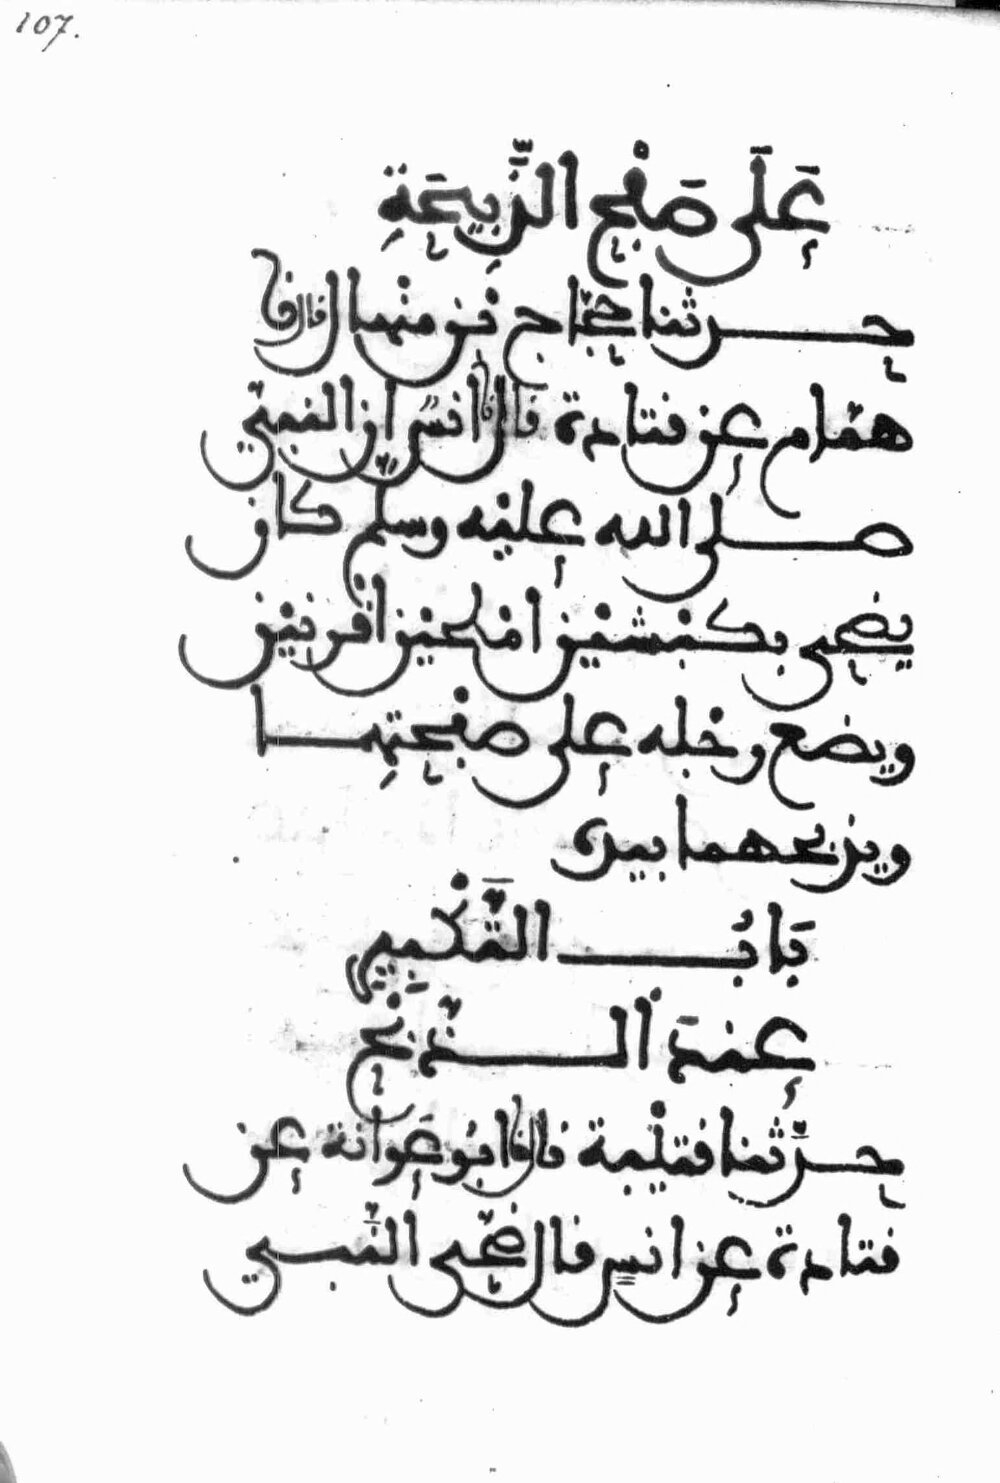 107.
عَلَى صَفْحِ الذَّبِيحَةِ
حدثنا حجّاج بْن منْهال قال نا
همّام عن قتادة قال نا أنسٌ أن النبيّ
صلى الله عليْه وسلّم كان
يضحى بكبْشيْن أمْلحيْن أقْرنيْن
ويضع رجْله على صفْحتِهما
ويذبحهما بيده
بَابُ التَّكْبِيرِ
عِنْدَ الذّبْحِ
حدّثنا قتيْبة قال نا أبُو عَوانة عن
قتادة عن أنسٍ قال ضحّى النّبي